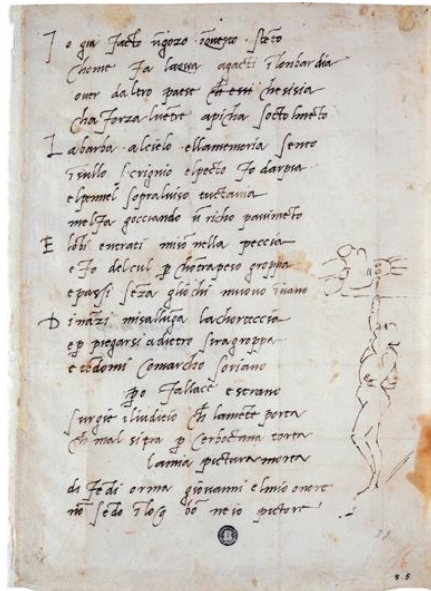 I o gia facto ũgozo ĩquesto stẽto
chome fa laqua agacti ĩ lombardia
over daltro paese ch essi chesisia
cha forza luẽtre apicha socto lmẽto
La barba alcielo ellamemoria sento
ĩsullo scrignio elpecto fo darpia
elpennel sopraluiso tuctauia
melfa gocciando ũ richo pauimẽto
E lõbi entrati miso nella peccia
e fo delcul p chõtrapeso groppa
epassi sẽza gliochi muouo ĩuano
Dinãzi misallũga lachorteccia
ep piegarsi adietro siragroppa
e tẽdomi comarcho soriano
po fallace e strano
surgie iliudicio ch lamẽte porta
ch mal sitra p cerboctana torta
lamia pictura morta
difẽdi orma giouanni elmio onore
nõ sẽdo ĩ log bõ ne io pictore
5.5